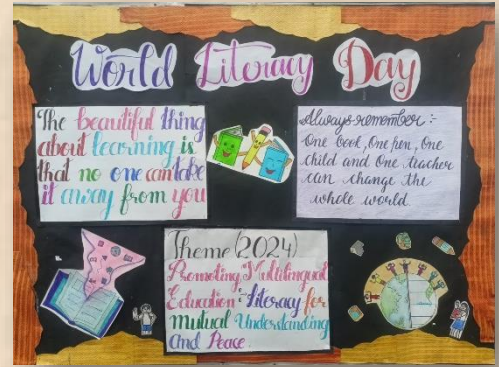 World Literacy Day
The beautiful thing
about learning is
that no one can take
it away from you
Always remember :-
One book, One pen, One
child and One teacher
can change the
whole world
Theme (2024)
Promoting "Multilingual
Education": Literacy for
Mutual Understanding
And Peace